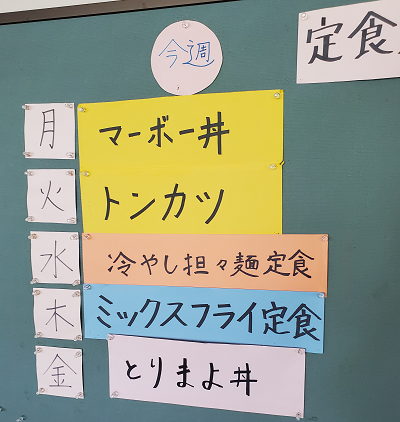 今週
定食
月 マーボー丼
火 トンカツ
水 冷やし担々麺定食
木 ミックスフライ定食
金 とりまよ丼